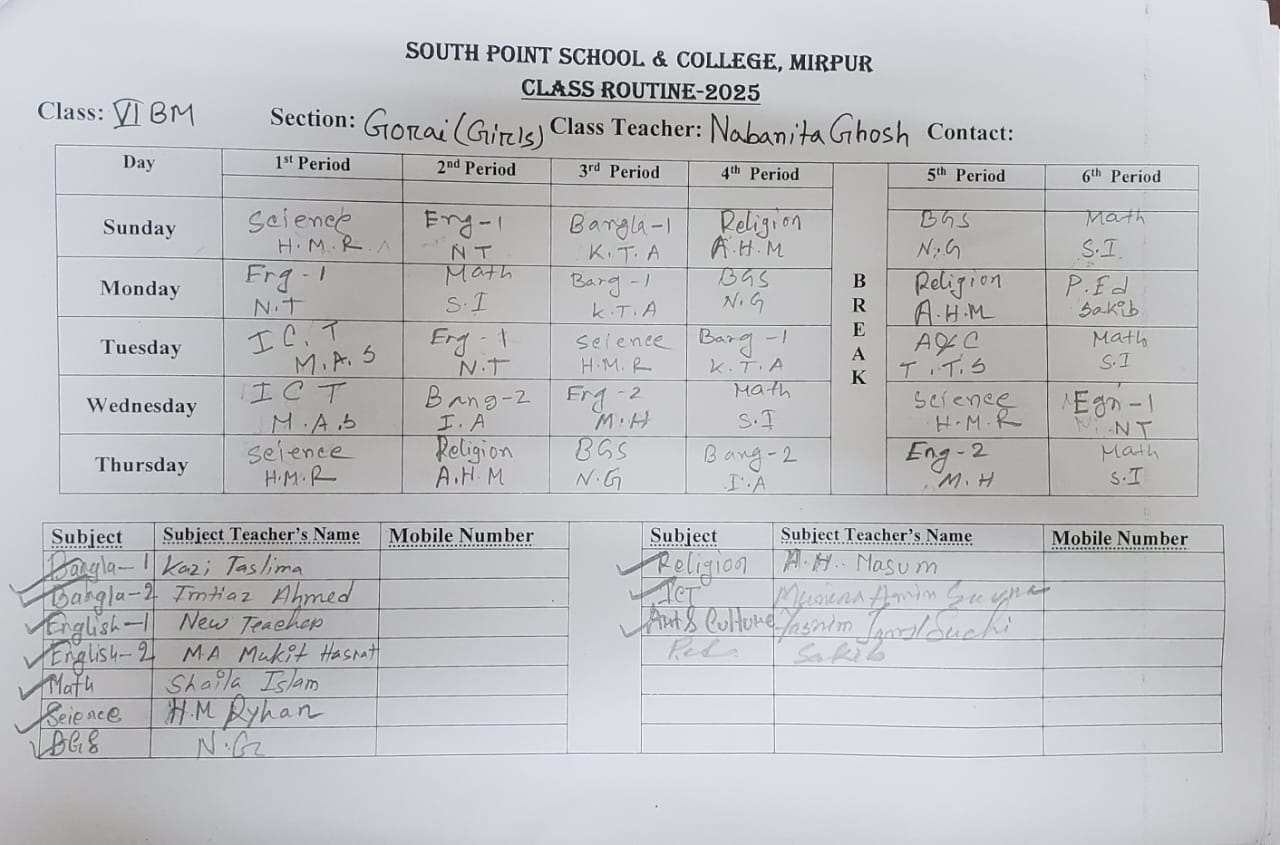 SOUTH POINT SCHOOL & COLLEGE, MIRPUR
CLASS ROUTINE-2025
Class: VI BM Section: Gorai (Girls) Class Teacher: Nabanita Ghosh Contact:
Day 1st Period 2nd Period 3rd Period 4th Period 5th Period 6th Period
Sunday Science Eng-1 Bangla-1 Religion BGS Math
H.M.R NT K.T.A A.H.M N.G S.I
Monday Eng-1 Math Bang-1 BGS Religion P.Ed
N.T S.I K.T.A N.G A.H.M Sakib
BREAK
Tuesday I C.T Eng-1 Science Bang-1 A&C Math
M.A.S N.T H.M.R K.T.A T.T.S S.I
Wednesday I C T Bang-2 Eng-2 Math Science Egn-1
M.A.S I.A M.H S.I H.M.R NT
Thursday Science Religion BGS Bang-2 Eng-2 Math
H.M.R A.H.M N.G I.A M.H S.I
Subject Subject Teacher's Name Mobile Number Subject Subject Teacher's Name Mobile Number
Bangla-1 Kazi Taslima Religion A.H. Masum
Bangla-2 Imtiaz Ahmed ICT Amin
English-1 New Teacher Art & Culture Suchi
English-2 M.A Mukit Hasnat P.ed. Sakib
Math Shaila Islam
Science H.M Ryhan
BGS N.G